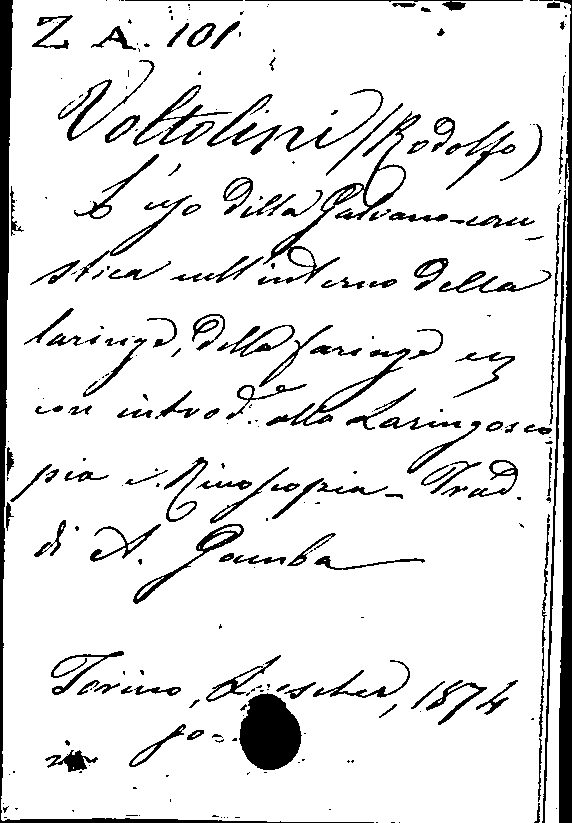 Z A. 101
Voltolini (Rodolfo)
L'uso della Galvano-cau-
stica nell'interno della
laringe, della faringe
con introd.e alla Laringosco
pia e Rinoscopia - Trad.
di A. Gamba
Torino, Loescher, 1874